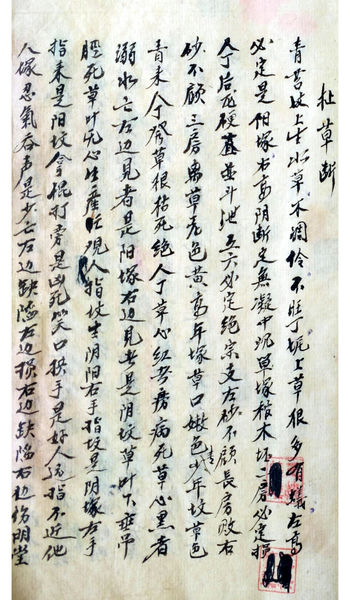 杜草断
青苔坟上生水草不润伶不旺丁坭上草根多有蚁左高
必定是阳塚右高阴断定無凝中死草塚棺木坏二房必定损
人丁后龙硬直並斗泄五六必定绝宗支左砂不顾長房败右
砂不顾三房 草老色黄高年塚草口嫩色少年坟草色
青来人丁發草根枯死绝人丁草心红劳病死草心黑者
溺水亡左边見者是阳塚右边見者是阴坟草叶下垂吊
胫死草叶无心生產 現人指坟生阴阳右手指坟是阴塚左手
指来是阳坟拿棍打旁是凶死笑口拱手是好人 指不近他
人塚忍氣吞声是少亡左边缺陷左边损右边缺陷右边伤明堂